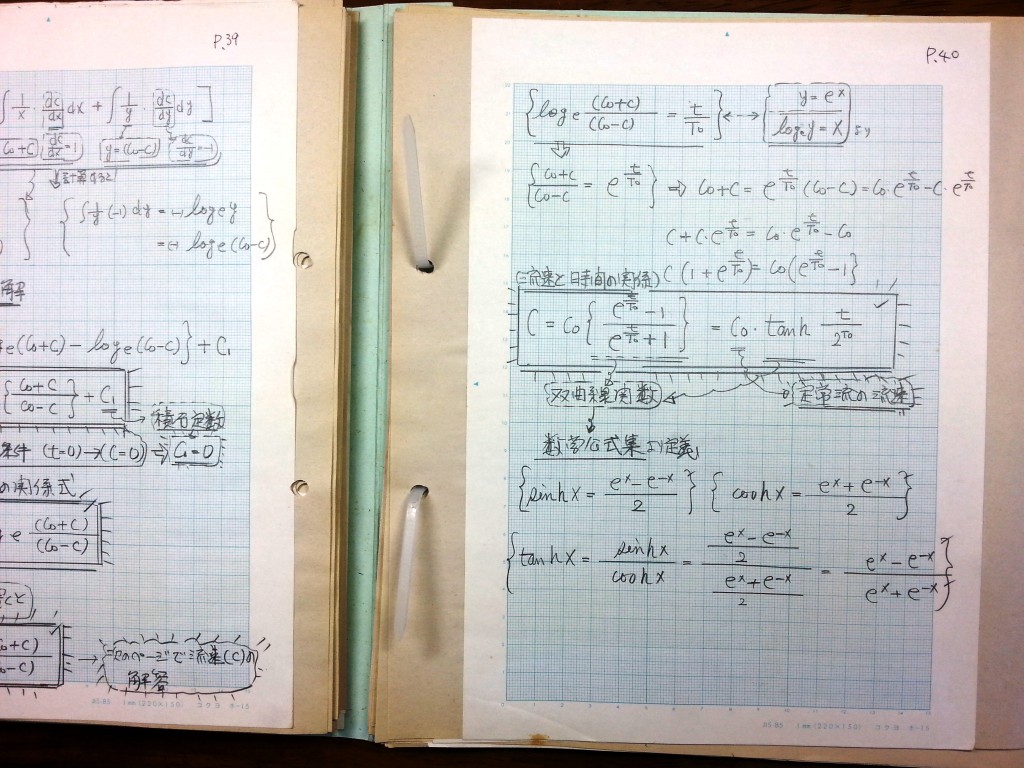 P.39
∫ 1/x · dc/dx dx + ∫ 1/y · dc/dy dy ]
C₀+C) dc/dx=1 y=(C₀-C) dc/dy=-1
計算すると
{ ∫ 1/y (-1) dy = -1 log e y
= (-) log e (C₀-C) }
解
g e (C₀+C) - log e (C₀-C) } + C₁
{ C₀+C / C₀-C } + C₁
積分定数
条件 (t=0)→(C=0) ⇒ C₁=0
の関係式
e (C₀+C)/(C₀-C)
C₀+C) / C₀-C)
→ 次のページで流速(C)の
解答
JIS B5 1mm(220×150) コクヨ ホ-15
P.40
{ log e (C₀+C)/(C₀-C) = t/T₀ } ←--→ { y=e^x / log e y = x }
{ C₀+C / C₀-C = e^(t/T₀) } ⇒ C₀+C = e^(t/T₀) (C₀-C) = C₀·e^(t/T₀) - C·e^(t/T₀)
C+C·e^(t/T₀) = C₀·e^(t/T₀) - C₀
(流速と時間の関係) C (1+e^(t/T₀)) = C₀ (e^(t/T₀) - 1}
C = C₀ { e^(t/T₀) - 1 / e^(t/T₀) + 1 } = C₀ · tanh t/2T₀
双曲線関数 定常流の流速
数学公式集より定義
{ sinhx = e^x - e^-x / 2 } { coshx = e^x + e^-x / 2 }
{ tanhx = sinhx / coshx = (e^x - e^-x / 2) / (e^x + e^-x / 2) = e^x - e^-x / e^x + e^-x }
JIS B5 1mm(220×150) コクヨ ホ-15